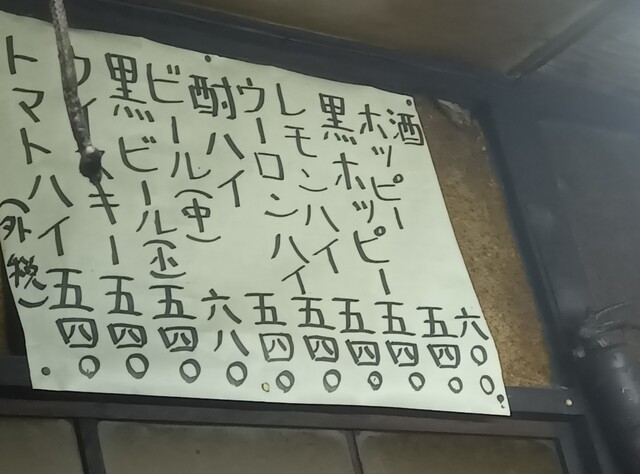 酒 六〇〇
ホッピー 五四〇
黒ホッピー 五四〇
レモンハイ 五四〇
ウーロンハイ 五四〇
酎ハイ 五四〇
ビール(中) 六八〇
黒ビール(小) 五四〇
ウイスキー 五四〇
トマトハイ 五四〇
(外税)